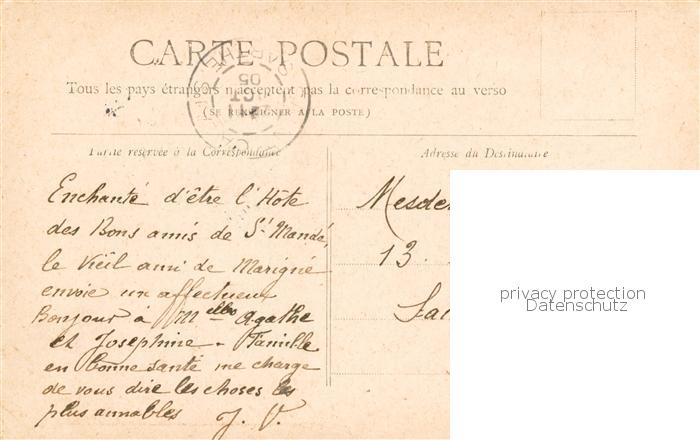 CARTE POSTALE
Tous les pays étrangers n'acceptent pas la correspondance au verso
(SE RENSEIGNER A LA POSTE)
Partie réservée à la Correspondance
Adresse du Destinataire
Enchanté d'être l'Hôte
des Bons amis de St Mandé,
le Vieil ami de Marigné
envoie un affectueux
Bonjour a Melles Agathe
et Josephine - Famille
en bonne santé me charge
de vous dire les choses les
plus aimables J. V.
13.
privacy protection
Datenschutz